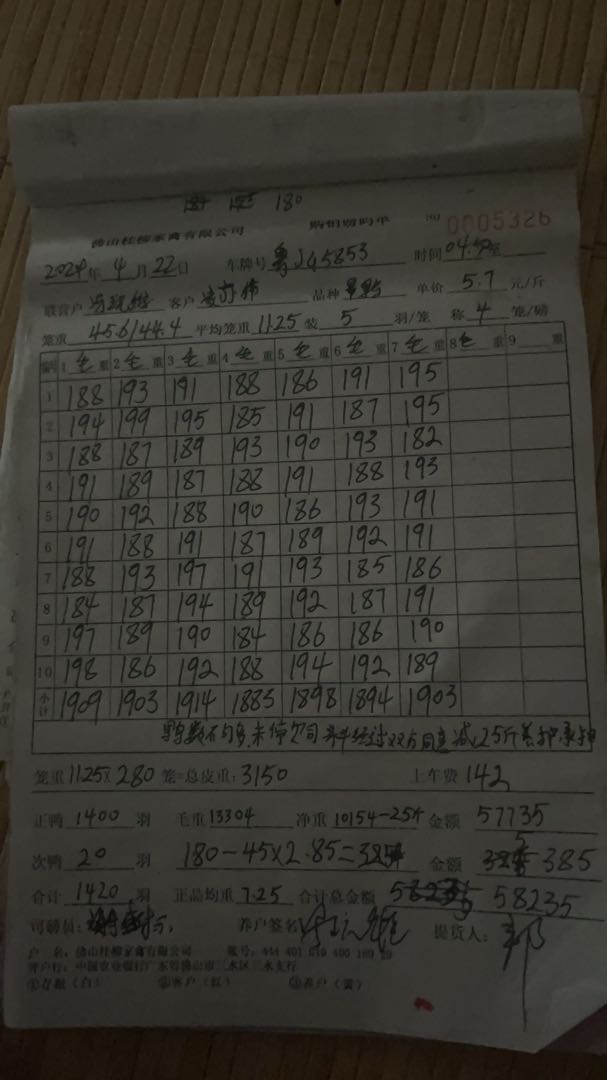 184 155 180
佛山桂柳家禽有限公司 购销磅码单 NO 0005326
2024年4月22日 车牌号 粤J45853 时间 04.50
联营户 客户 品种 单价 5.7 元/斤
笼重 45.6/44.4 平均笼重 11.25 装 5 羽/笼 称 4 笼/磅
编号 1毛重 2毛重 3毛重 4毛重 5毛重 6毛重 7毛重 8毛重 9 重
1 188 193 191 188 186 191 195
2 194 199 195 185 191 187 195
3 188 187 189 193 190 193 182
4 191 189 187 188 191 188 193
5 190 192 188 190 186 193 191
6 191 188 191 187 189 192 191
7 188 193 197 191 193 185 186
8 184 187 194 189 192 187 191
9 197 189 190 184 186 186 190
10 198 186 192 188 194 192 189
小计 1909 1903 1914 1883 1898 1894 1903
双方同意减25斤
笼重 11.25 x 280 笼=总皮重: 3150 上车费 142
正鸭 1400 羽 毛重 13304 净重 10154-25斤 金额 57735
次鸭 20 羽 180-45×2.85=385 金额 385
合计 1420 羽 正品均重 7.25 合计总金额 58235
司磅员: 养户签名 提货人: 邓
户 名: 佛山桂柳家禽有限公司 账号: 444 401 010 400 189 29
开户行: 中国农业银行广东省佛山市三水区三水支行
①存根(白) ②客户(红) ③养户(黄)